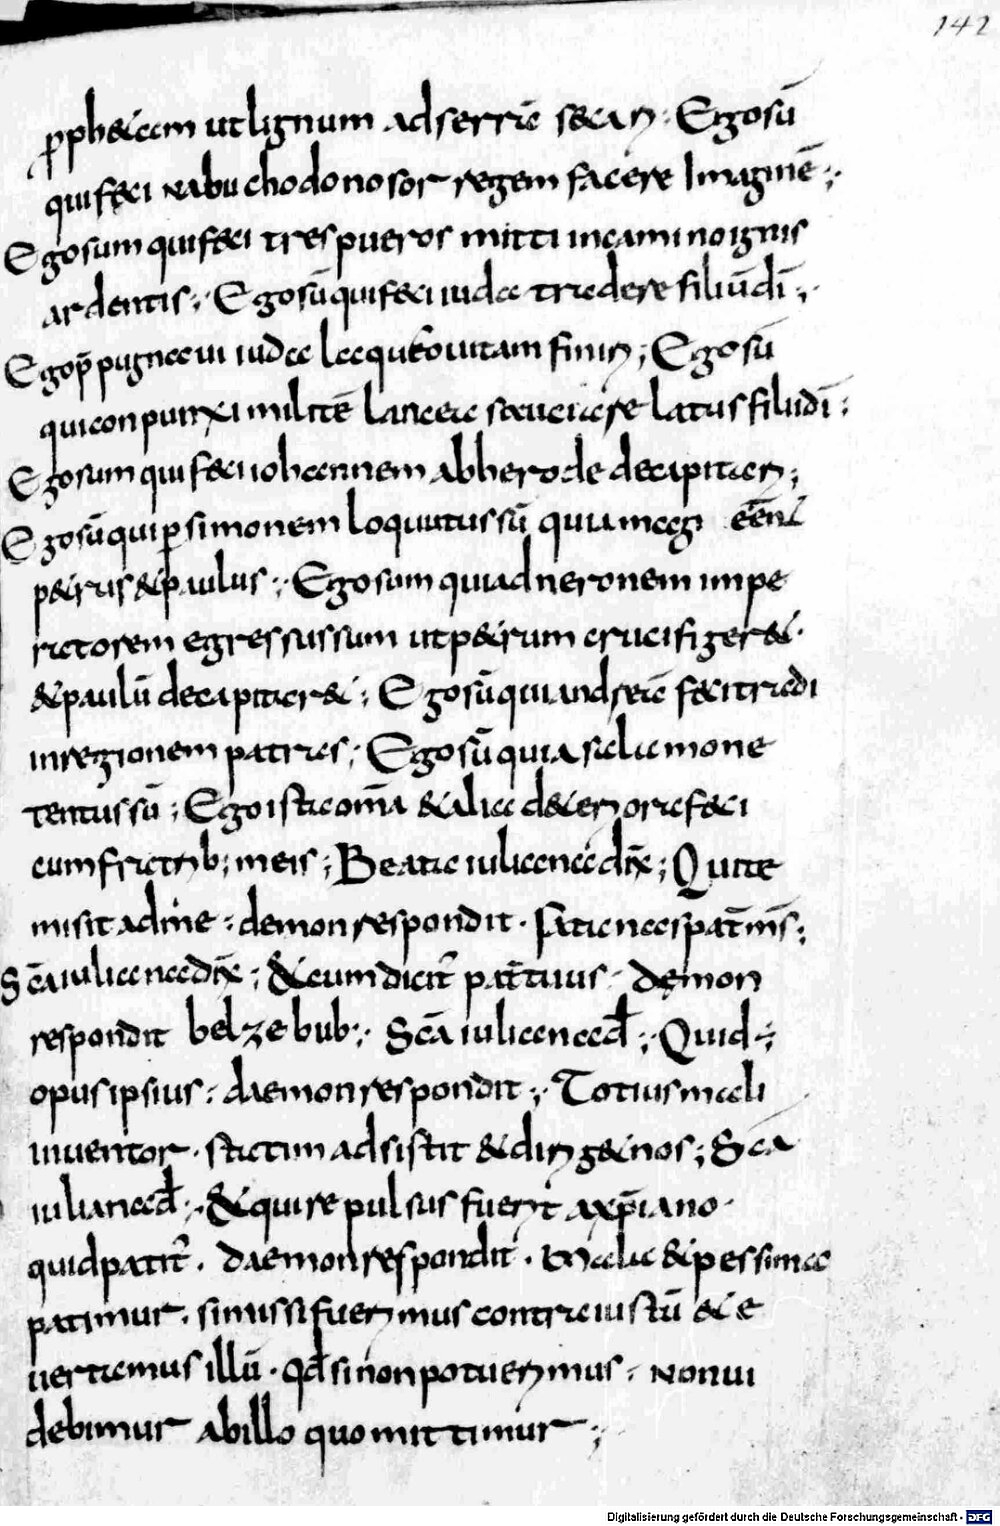 142
p̄ph&am ut lignum ad serrā secari· Ego sū
qui feci nabuchodonosor regem facere Imaginē;·
Ego sum qui feci tres pueros mitti in camino ignis
ardentis;· Ego sū qui feci iuda tradere filiū dī;·
Ego p̄pugnaui iuda laqueo uitam finiri; Ego sū
qui conpunxi militē lancea sauciare latus filii dī:
Ego sum qui feci iohannem ab herode decapitari;
Ego sū qui ꝑ simonem loquutus sū quia magi eēnt
p&rus & paulus;· Ego sum qui ad neronem impe
ratorem egressus sum ut p&rum crucifiger&·
& paulū decapitar&; Ego sū qui andreā feci tradi
in regionem patras; Ego sū qui a salamone
tentus sū; Ego ista om̄a & alia d&eriora feci
cum fratrib; meis; Beata iuliana dix̄; Qui te
misit ad me: demon respondit· satanas pat̄ m̄s;
Sc̄a iuliana dix̄; & cum dicit̄ pat̄ tuus· Demon
respondit belzebub;· Sc̄a iuliana d̄;· Quid ;
opus ipsius: daemon respondit;· Totius mali
inuentor· statim adsistit & dirig& nos; Sc̄a
iuliana d̄;· & qui repulsus fuerit a xp̄iano·
quid patit̄· Daemon respondit· Mala & pessima
patimur· si missi fuerimus contra iustū & e
uertamus illū· qd̄ si non potuerimus· non ui
debimur ab illo quo mittimur;
Digitalisierung gefördert durch die Deutsche Forschungsgemeinschaft - DFG